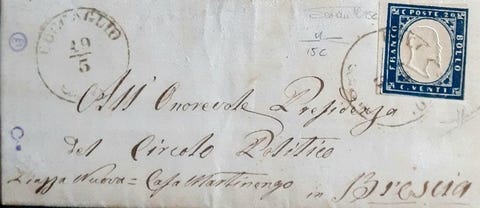 19
5
15C
C. POSTE 20
FRANCO
BOLLO
C. VENTI
All' Onorevole Presidenza
del Circolo Politico
Piazza Nuova = Casa Martinengo
in Brescia